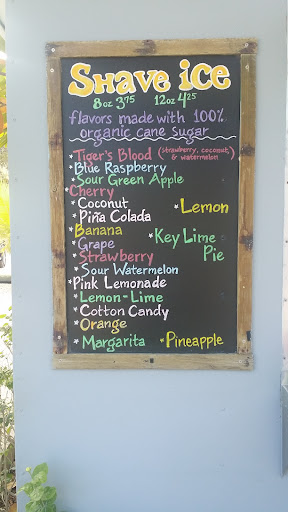 Shave ice
8oz 3.75 12oz 4.25
flavors made with 100%
organic cane sugar
*Tiger's Blood (strawberry, coconut, & watermelon)
*Blue Raspberry
*Sour Green Apple
*Cherry
*Coconut
*Lemon
*Piña Colada
*Banana
*Key Lime Pie
*Grape
*Strawberry
*Sour Watermelon
*Pink Lemonade
*Lemon-Lime
*Cotton Candy
*Orange
*Margarita *Pineapple